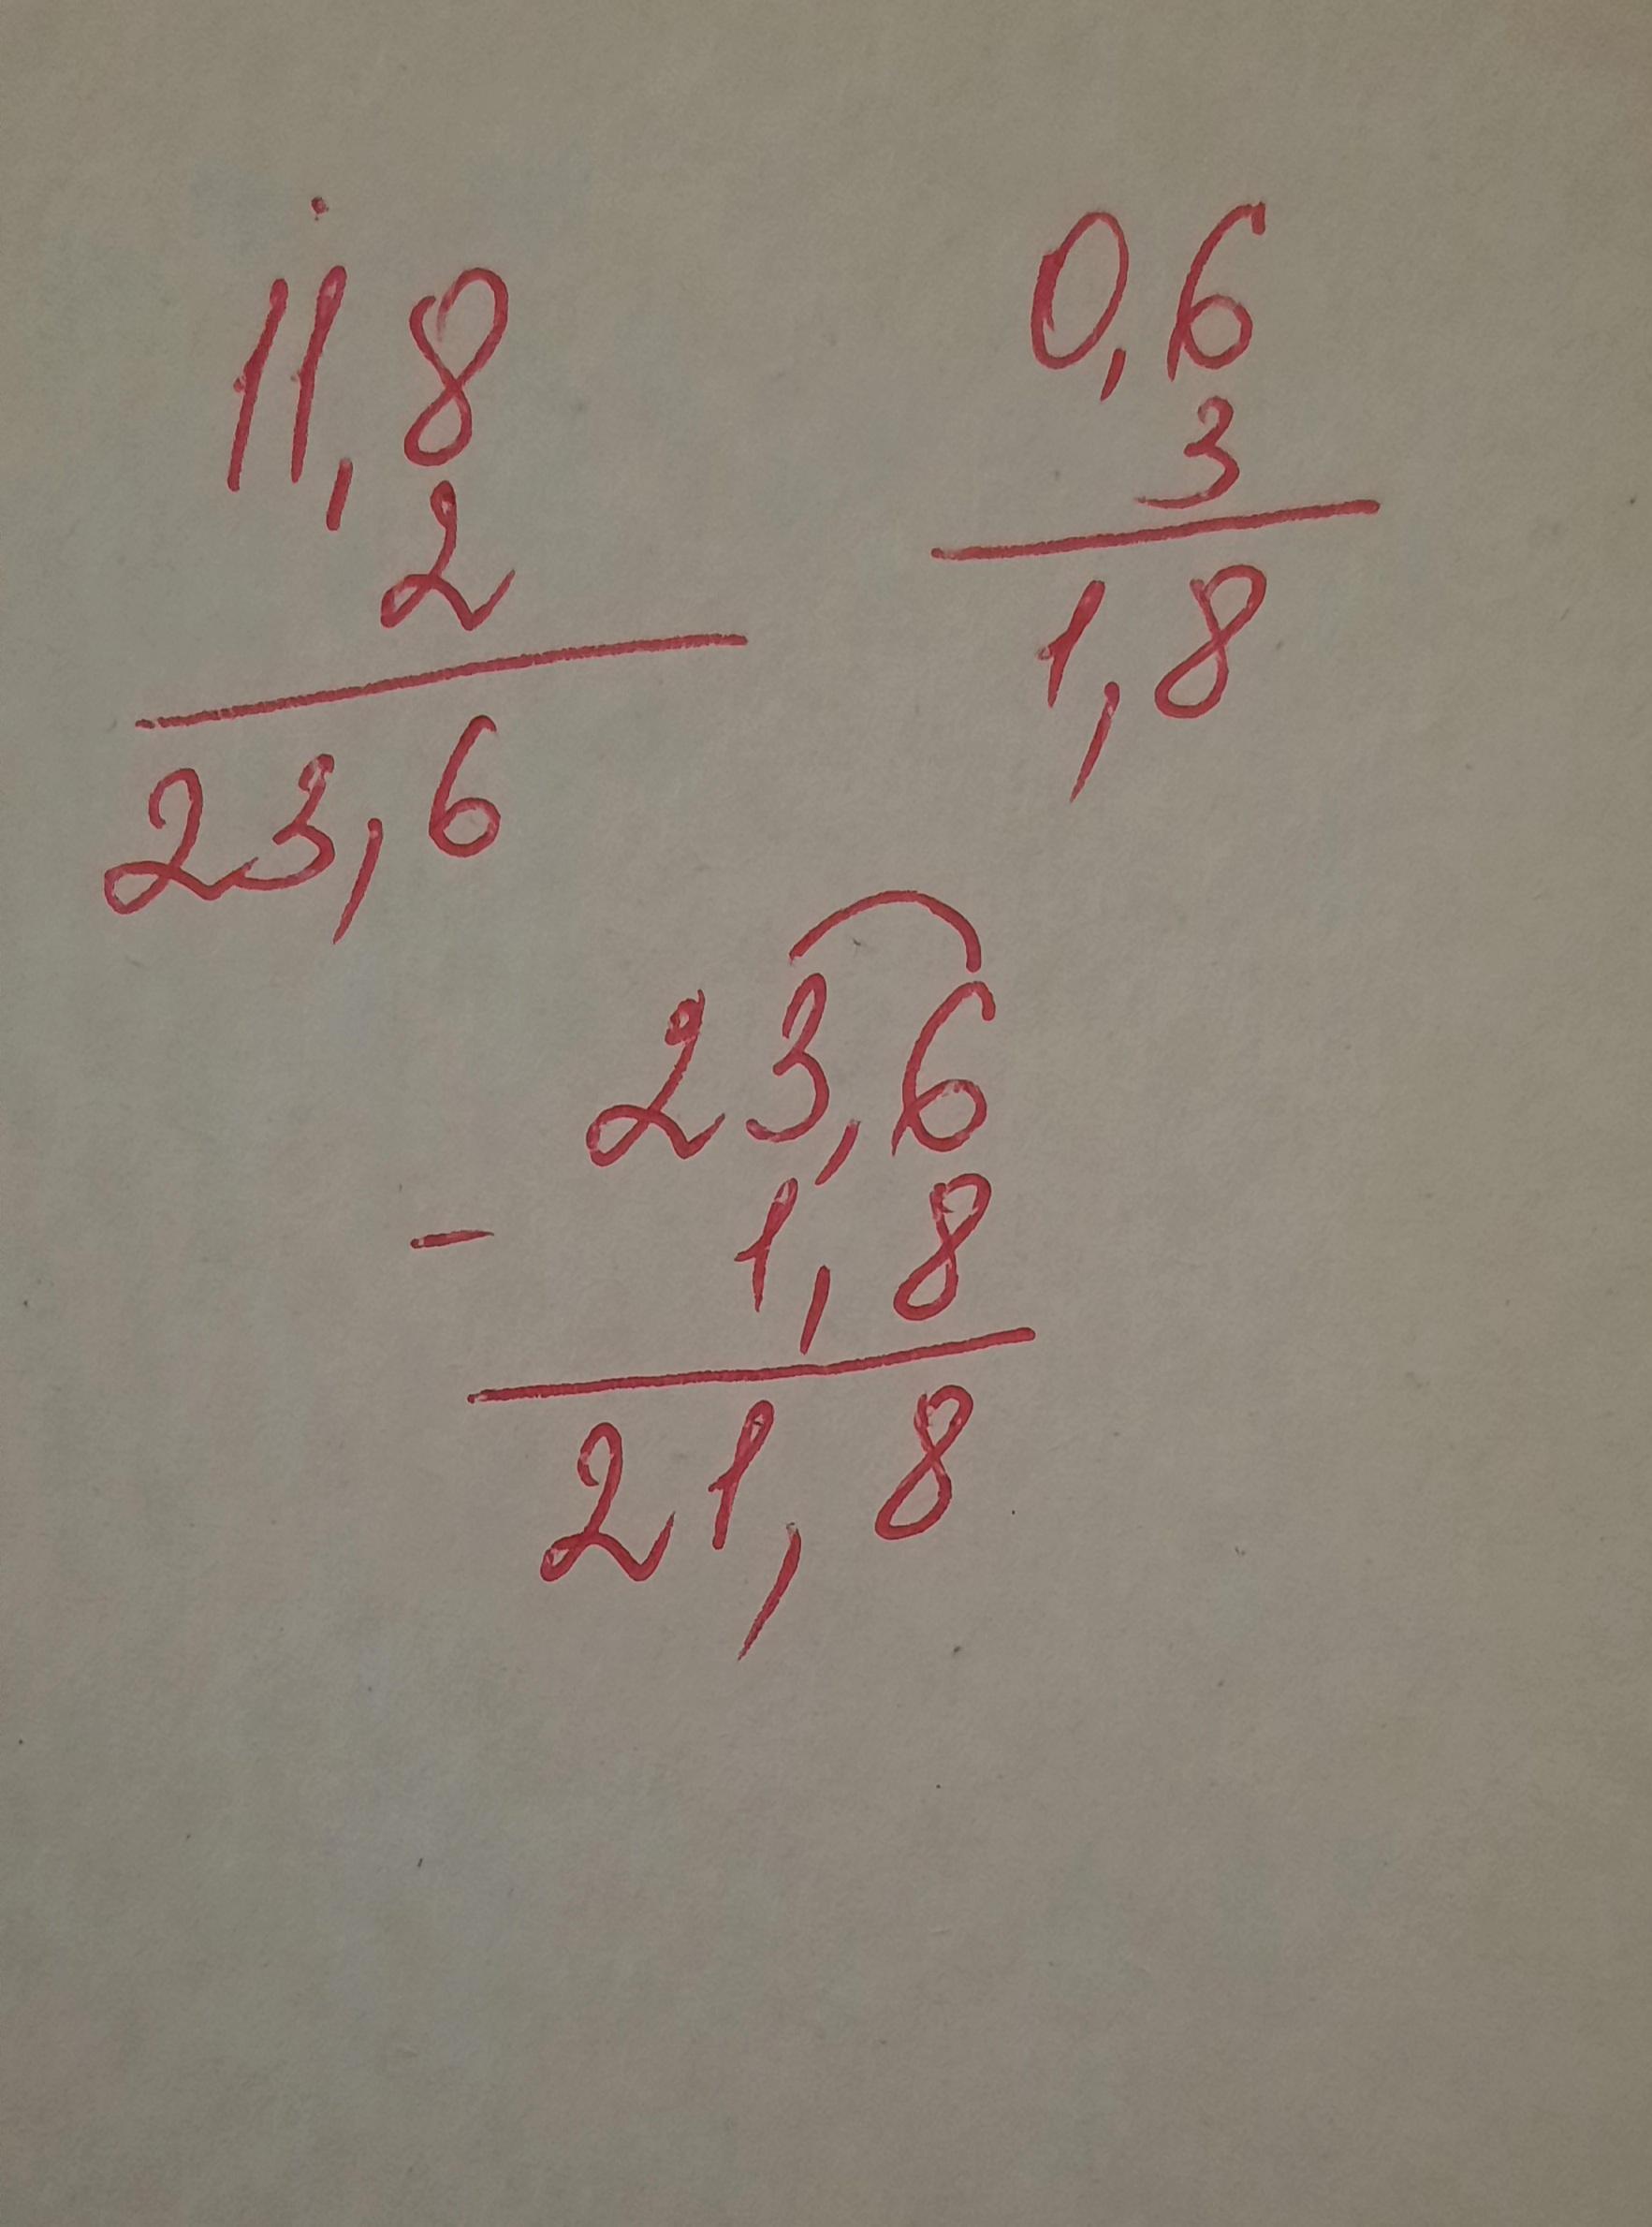 11,8
2
23,6
0,6
3
1,8
23,6
- 1,8
21,8